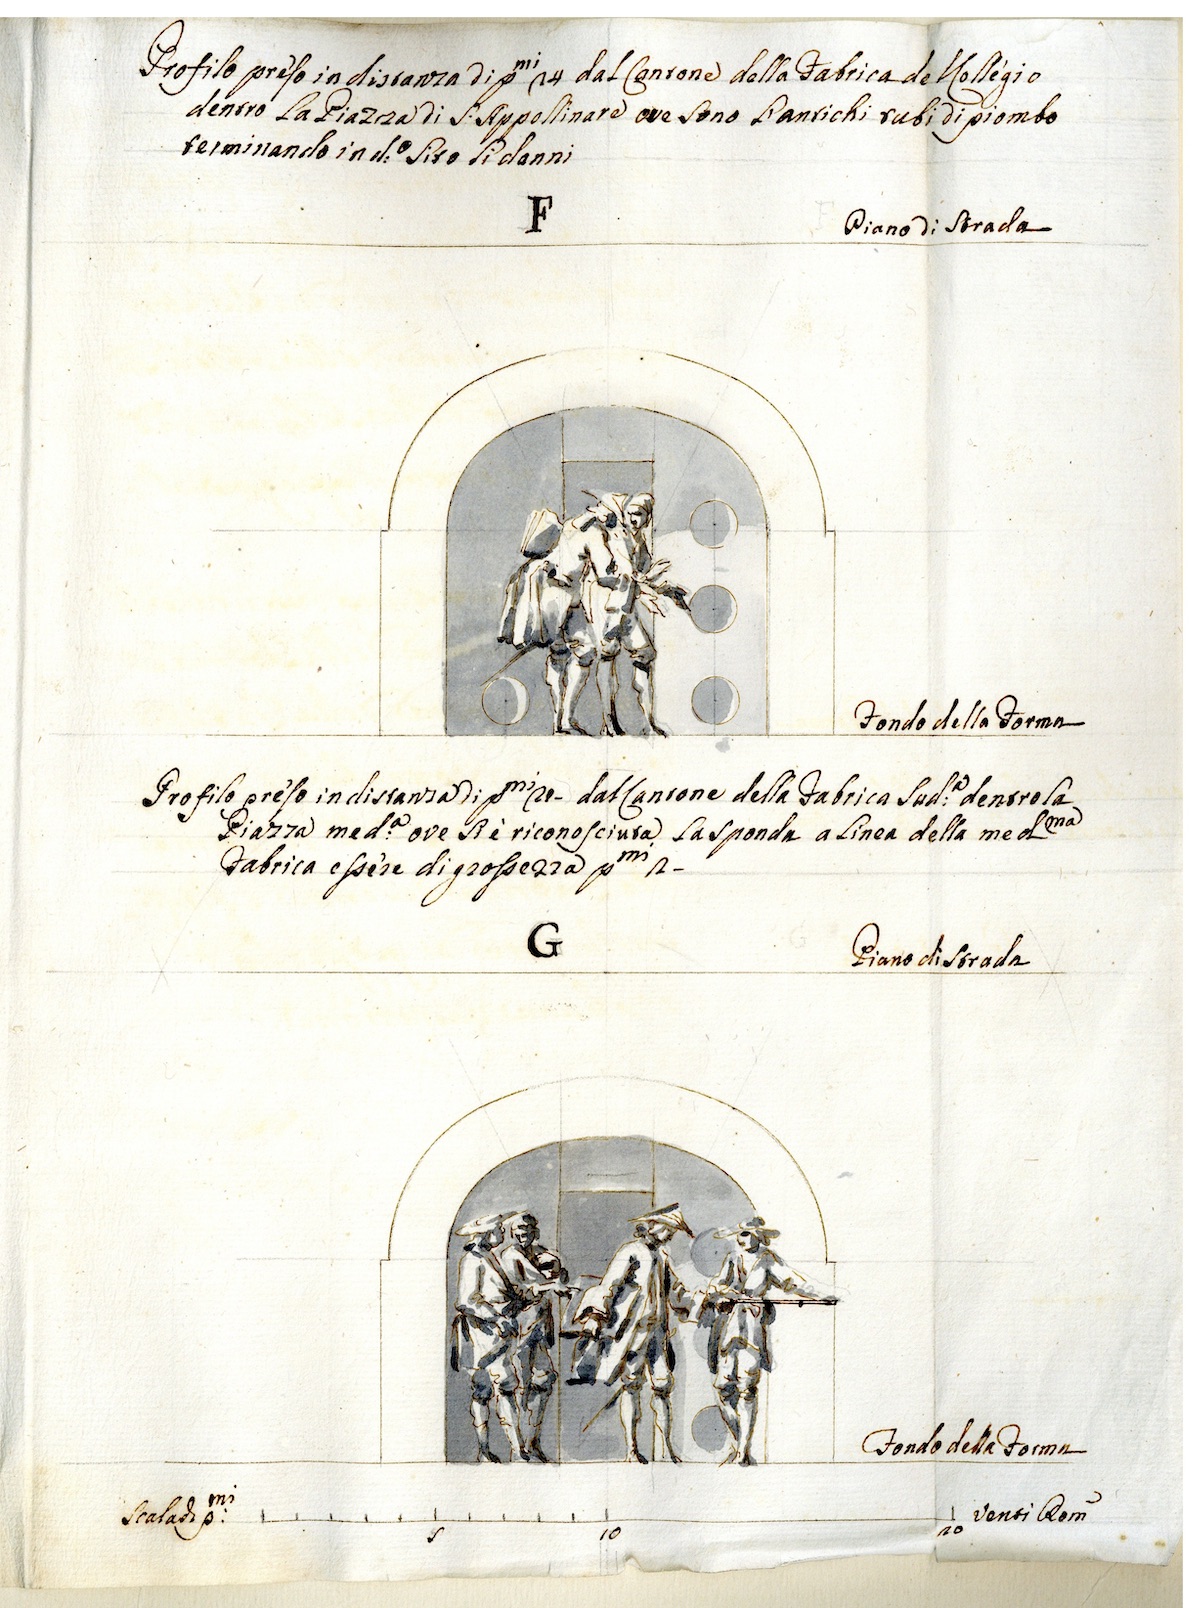 Profilo preso in distanza di p.mi 14 dal Cantone della Fabrica del Collegio
dentro La Piazza di S. Appollinare ove sono L'antichi tubi di piombo
terminando in d.o Sito Li danni
F
Piano di Strada
Fondo della Forma
Profilo preso in distanza di p.mi 20 dal Cantone della Fabrica Sud.a dentro La
Piazza med.a ove si è riconosciuta La sponda a Linea della med.ma
Fabrica essere di grossezza p.mi 2
G
Piano di Strada
Fondo della Forma
Scala di p.mi
5
10
20
Venti Rom.